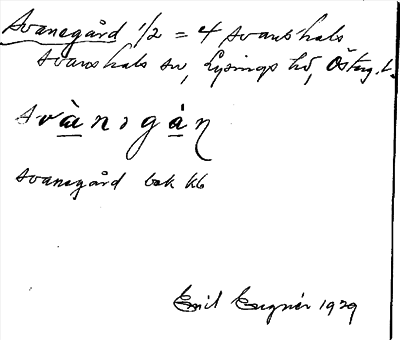 Svanegård 1/2 = 4 Svanshals
Svanshals sn, Lysings hd, Österg. l.
svànɜgàṇ
Svanegård bek kb
Emil 1929